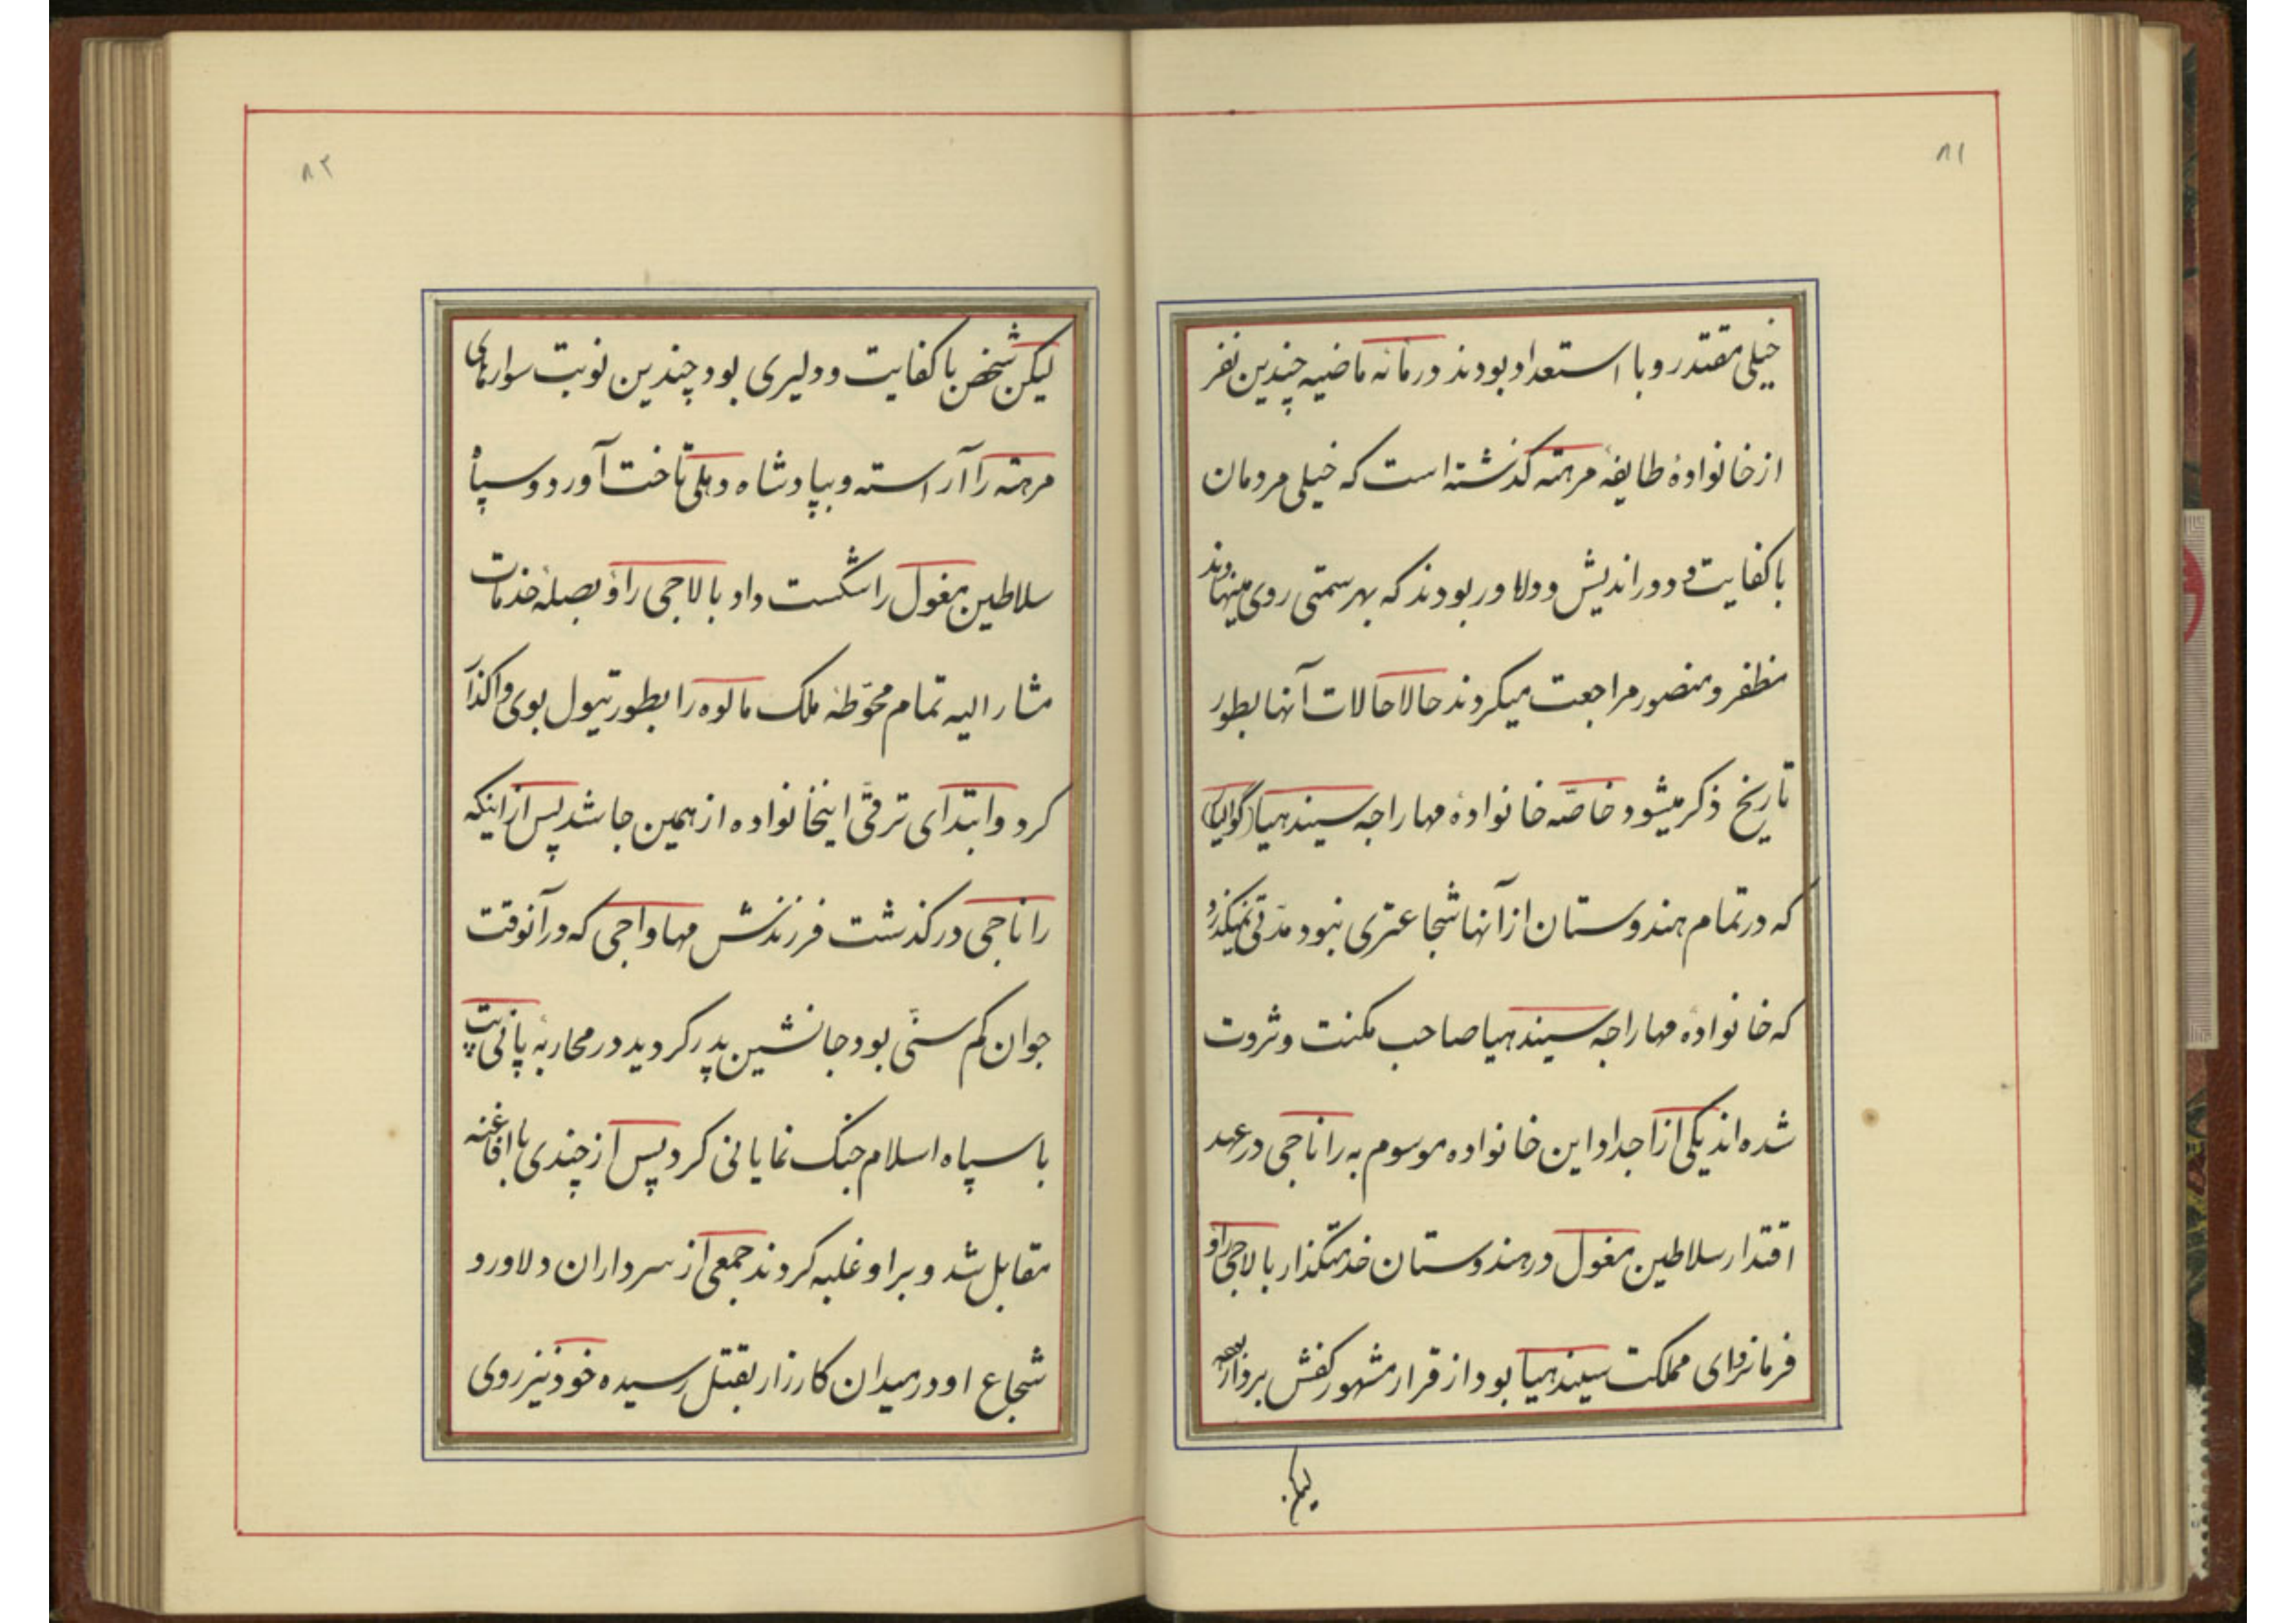 ۸۱
خیلی مقتدر و با استعداد بودند در زمانه ماضیه چندین نفر
از خانوادهٔ طایفهٔ مرهته گذشته است که خیلی مردمان
با کفایت و دوراندیش و دلاور بودند که بهر سمتی روی مینهادند
مظفر و منصور مراجعت میکردند حالا حالات آنها بطور
تاریخ ذکر میشود خاصّه خانوادهٔ مهاراجه سیندهیا (گوالیار)
که در تمام هندوستان از آنها شجاعتری نبود مدّتی نمیگذرد
که خانوادهٔ مهاراجه سیندهیا صاحب مکنت و ثروت
شده‌اند یکی از اجداد این خانواده موسوم به راناجی در عهد
اقتدار سلاطین مغول در هندوستان خدمتگذار بالاجی راؤ
فرمانفرمای مملکت سیندهیا بود از قرار مشهور کفش بردار
لیکن
۸۲
لیکن شخص با کفایت و دلیری بود چندین نوبت سوارهای
مرهته را آراسته و بپادشاه دهلی تاخت آورد و سپاه
سلاطین مغول را شکست داد بالاجی راؤ بصلهٔ خدمات
مشارالیه تمام محوّطهٔ ملک مالوه را بطور تیول بوی واگذار
کرد و ابتدای ترقّی اینخانواده از همین جا شد پس از اینکه
راناجی درگذشت فرزندش مهاواجی که در آنوقت
جوان کم سنّی بود جانشین پدر گردید در محاربهٔ پانی پت
با سپاه اسلام جنگ نمایانی کرد پس از چندی با افاغنه
مقابل شد و بر او غلبه کردند جمعی از سرداران دلاور و
شجاع او در میدان کارزار بقتل رسیده خود نیز روی